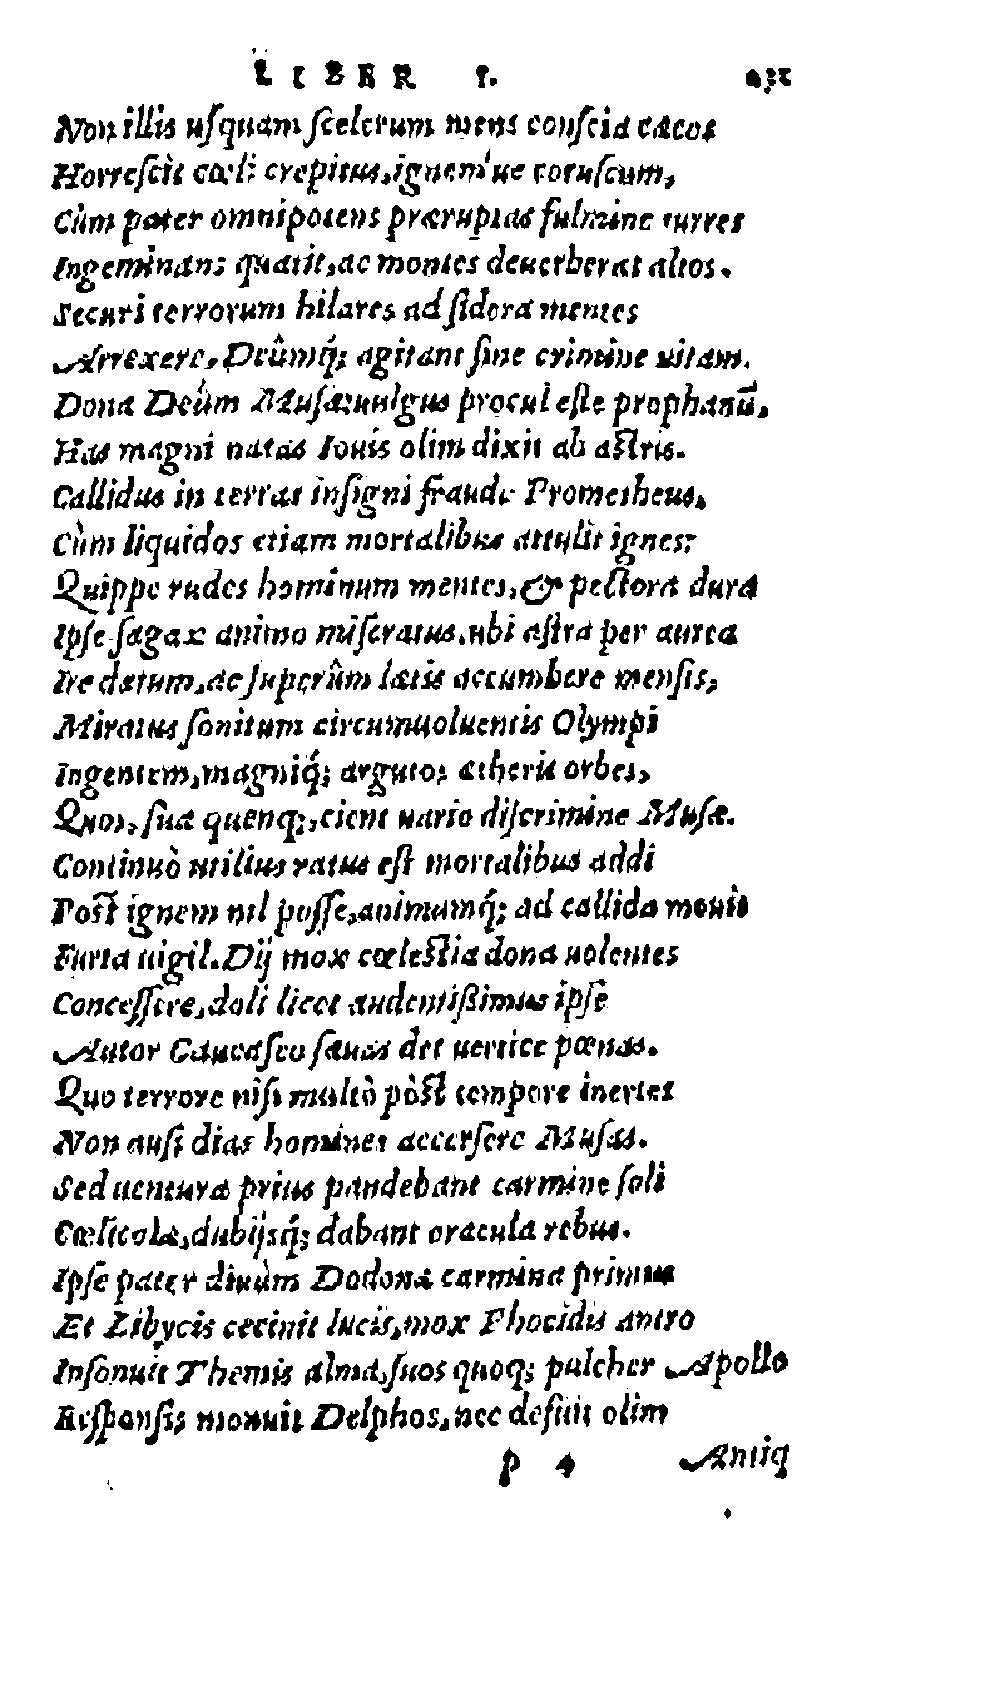 LIBER I.
Non illis usquam scelerum mens conscia cæcos
Horrescit cœli crepitus, ignem'ue coruscum,
Cùm pater omnipotens prærupias fulmine turres
Ingeminans quatit, ac montes deuerberat altos.
Securi terrorum hilares ad sidera mentes
Arrexere, Deûmq́; agitant sine crimine uitam.
Dona Deûm Musæ: uulgus procul este prophanū.
Has magni natas Iouis olim dixit ab astris.
Callidus in terras insigni fraude Prometheus,
Cùm liquidos etiam mortalibus attulit ignes:
Quippe rudes hominum mentes, & pectora dura
Ipse sagax animo miseratus, ubi astra per aurea
Ire datum, ac superûm lætis accumbere mensis,
Miratus sonitum circumuoluentis Olympi
Ingentem, magniq́; argutos ætheris orbes,
Quos, sua quenq;, cient uario discrimine Musæ.
Continuò utilius ratus est mortalibus addi
Post ignem nil posse, animumq́; ad callida mouit
Furta uigil. Dij mox cœlestia dona uolentes
Concessere, doli licet audentißimus ipse
Autor Caucaseo sæuas det uertice pœnas.
Quo terrore nisi multò pòst tempore inertes
Non ausi dias homines accersere Musas.
Sed uentura prius pandebant carmine soli
Cœlicolæ, dubijsq́; dabant oracula rebus.
Ipse pater diuùm Dodonæ carmina primus
Et Libycis cecinit lucis, mox Phocidis antro
Insonuit Themis alma, suos quoq; pulcher Apollo
Responsis monuit Delphos, nec defuit olim
p 4 Antiq